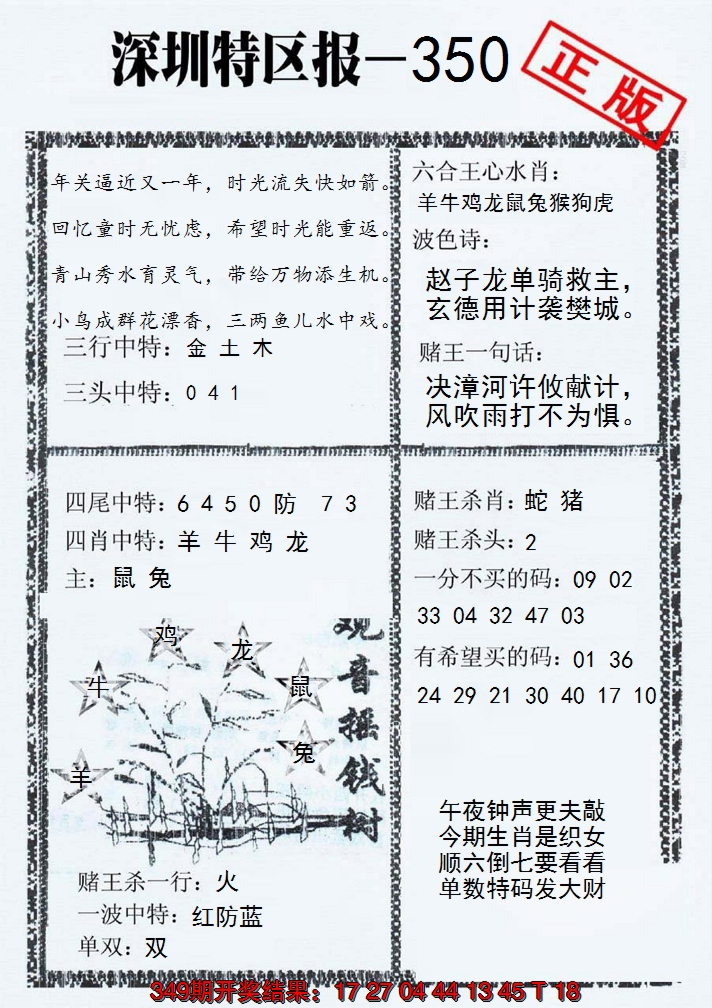 深圳特区报-350
正版
年关逼近又一年，时光流失快如箭。
回忆童时无忧虑，希望时光能重返。
青山秀水育灵气，带给万物添生机。
小鸟成群花漂香，三两鱼儿水中戏。
三行中特：金 土 木
三头中特：0 4 1
六合王心水肖：
羊牛鸡龙鼠兔猴狗虎
波色诗：
赵子龙单骑救主，
玄德用计袭樊城。
赌王一句话：
决漳河许攸献计，
风吹雨打不为惧。
四尾中特：6 4 5 0 防 7 3
四肖中特：羊 牛 鸡 龙
主：鼠 兔
鸡
龙
牛
鼠
兔
羊
观音摇钱树
赌王杀一行：火
一波中特：红防蓝
单双：双
赌王杀肖：蛇 猪
赌王杀头：2
一分不买的码：09 02
33 04 32 47 03
有希望买的码：01 36
24 29 21 30 40 17 10
午夜钟声更夫敲
今期生肖是织女
顺六倒七要看看
单数特码发大财
349期开奖结果：17 27 04 44 13 45 T 18